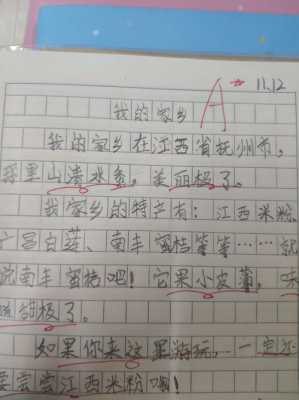 A 11.12
我的家乡
我的家乡在江西省抚州市，
那里山清水秀，美丽极了。
我家乡的特产有：江西米粉、
广昌白莲、南丰蜜桔等等……就
说南丰蜜桔吧！它果小皮薄，味
甜极了。
如果你来这里游玩，一定
要尝尝江西米粉哦！